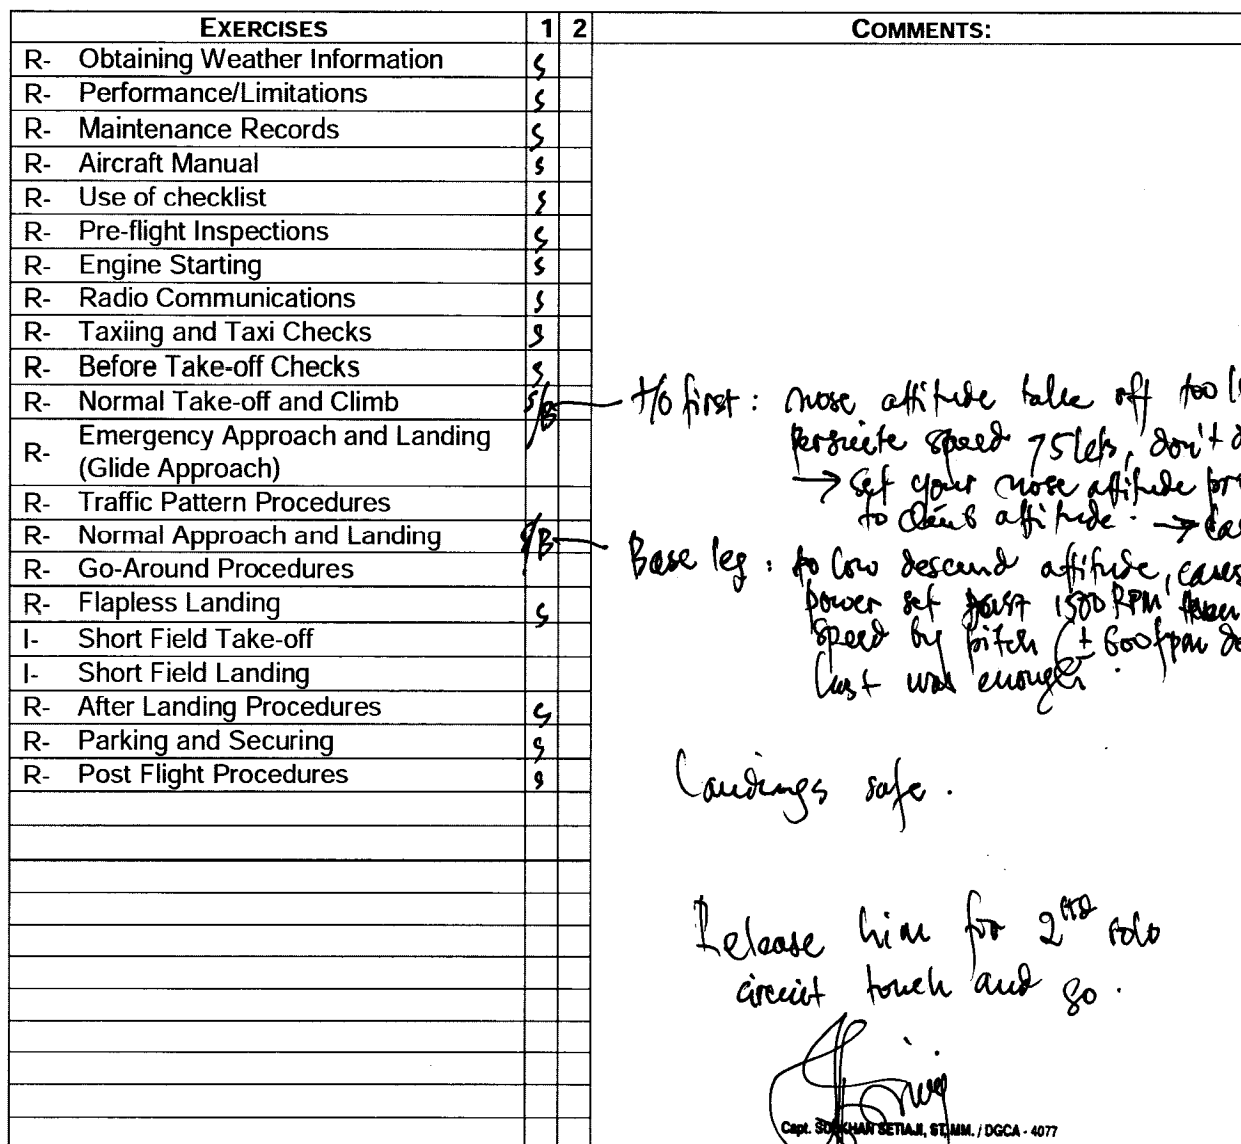 EXERCISES 1 2 COMMENTS:
R- Obtaining Weather Information S
R- Performance/Limitations S
R- Maintenance Records S
R- Aircraft Manual S
R- Use of checklist S
R- Pre-flight Inspections S
R- Engine Starting S
R- Radio Communications S
R- Taxiing and Taxi Checks S
R- Before Take-off Checks S
R- Normal Take-off and Climb S/B
R- Emergency Approach and Landing
(Glide Approach)
R- Traffic Pattern Procedures
R- Normal Approach and Landing S/B
R- Go-Around Procedures
R- Flapless Landing S
I- Short Field Take-off
I- Short Field Landing
R- After Landing Procedures S
R- Parking and Securing S
R- Post Flight Procedures S
T/o first: nose attitude take off too
speed 75 don't
→ Set your nose attitude
to attitude. →
Base leg: to low descend attitude,
power set 1500 RPM
speed by pitch (± 600 fpm
was enough.
Landings safe.
Release him for 2nd solo
circuit touch and go.
Capt. SETIAJI, ST.MM. / DGCA - 4077